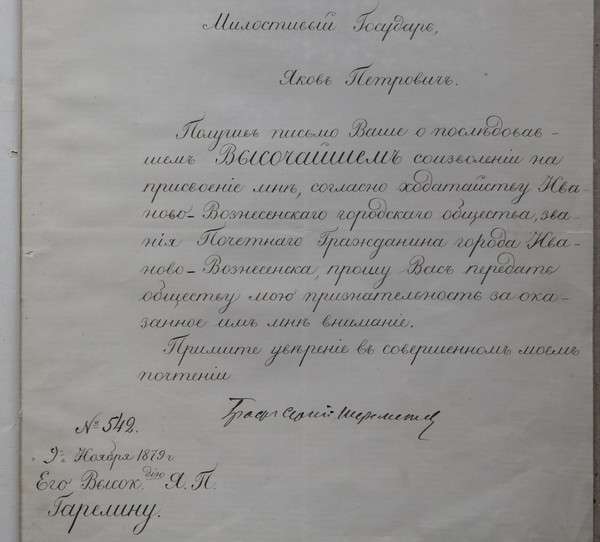 Милостивый Государь,
Яковъ Петровичъ.
Получивъ письмо Ваше о послѣдовав-
шемъ ВЫСОЧАЙШЕМЪ соизволеніи на
присвоеніе мнѣ, согласно ходатайству Ива-
ново-Вознесенскаго городскаго общества, зва-
нія Почетнаго Гражданина города Ива-
ново-Вознесенска, прошу Васъ передать
обществу мою признательность за ока-
занное имъ мнѣ вниманіе.
Примите увѣреніе въ совершенномъ моемъ
почтеніи
Графъ Сергій Шереметевъ
№ 542.
9го Ноября 1879 г
Его Высок.дію Я. П.
Гарелину.